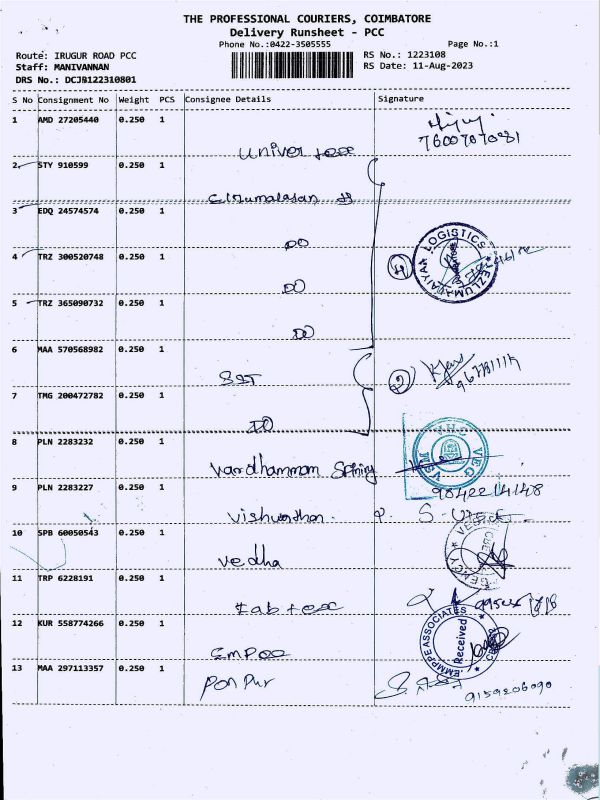 THE PROFESSIONAL COURIERS, COIMBATORE
Delivery Runsheet - PCC
Phone No.:0422-3505555 Page No.:1
Route: IRUGUR ROAD PCC RS No.: 1223108
Staff: MANIVANNAN RS Date: 11-Aug-2023
DRS No.: DCJB122310801
S No Consignment No Weight PCS Consignee Details Signature
1 AMD 27205440 0.250 1
7600707081
univer texx
2 STY 910599 0.250 1
3 EDQ 24574574 0.250 1
DO
4 TRZ 300520748 0.250 1
LOGISTICS
4
DO
5 TRZ 365090732 0.250 1
DO
6 MAA 570568982 0.250 1
SST
2
7 TMG 200472782 0.250 1
DO
8 PLN 2283232 0.250 1
VHC
Vardhamman Spining
9 PLN 2283227 0.250 1
9842214148
Vishwardhan.
10 SPB 60050543 0.250 1
Vedha
11 TRP 6228191 0.250 1
Fab texx
12 KUR 558774266 0.250 1
EMMPPE ASSOCIATES
Received
Empee
13 MAA 297113357 0.250 1
Pon Pur
9159206090